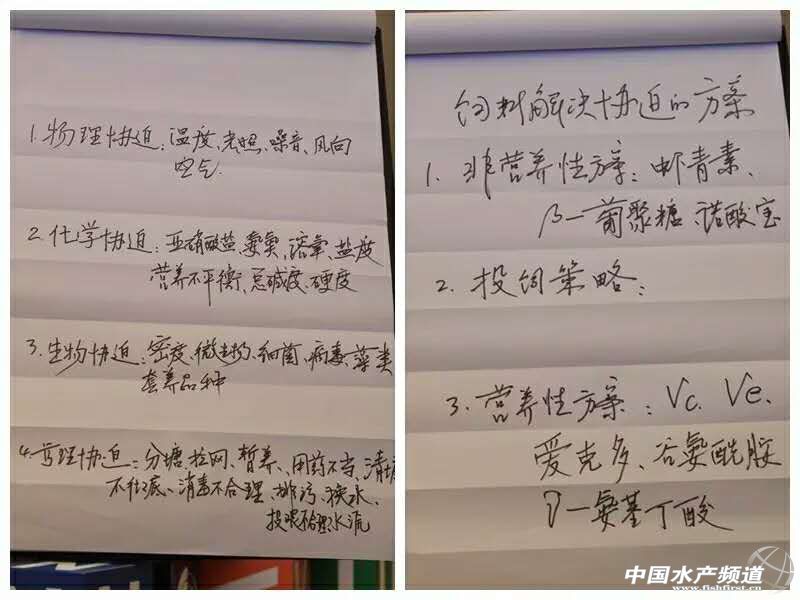 1. 物理协迫：温度、光照、噪音、风向
空气.
2. 化学协迫：亚硝酸盐、氨氮、溶氧、盐度
营养不平衡、总碱度、硬度
3. 生物协迫：密度、微生物、细菌、病毒、藻类
套养品种
协迫：分塘、拉网、暂养、用药不当、清塘
不彻底、消毒不合理、排污、换水、
投喂不合理、水流
饲料解决协迫的方案
1. 非营养性方案：虾青素、
β—葡聚糖、诺酸宝
2. 投饲策略：
3. 营养性方案：Vc. Ve、
爱克多、谷氨酰胺
γ—氨基丁酸
中国水产频道
www.fishfirst.cn